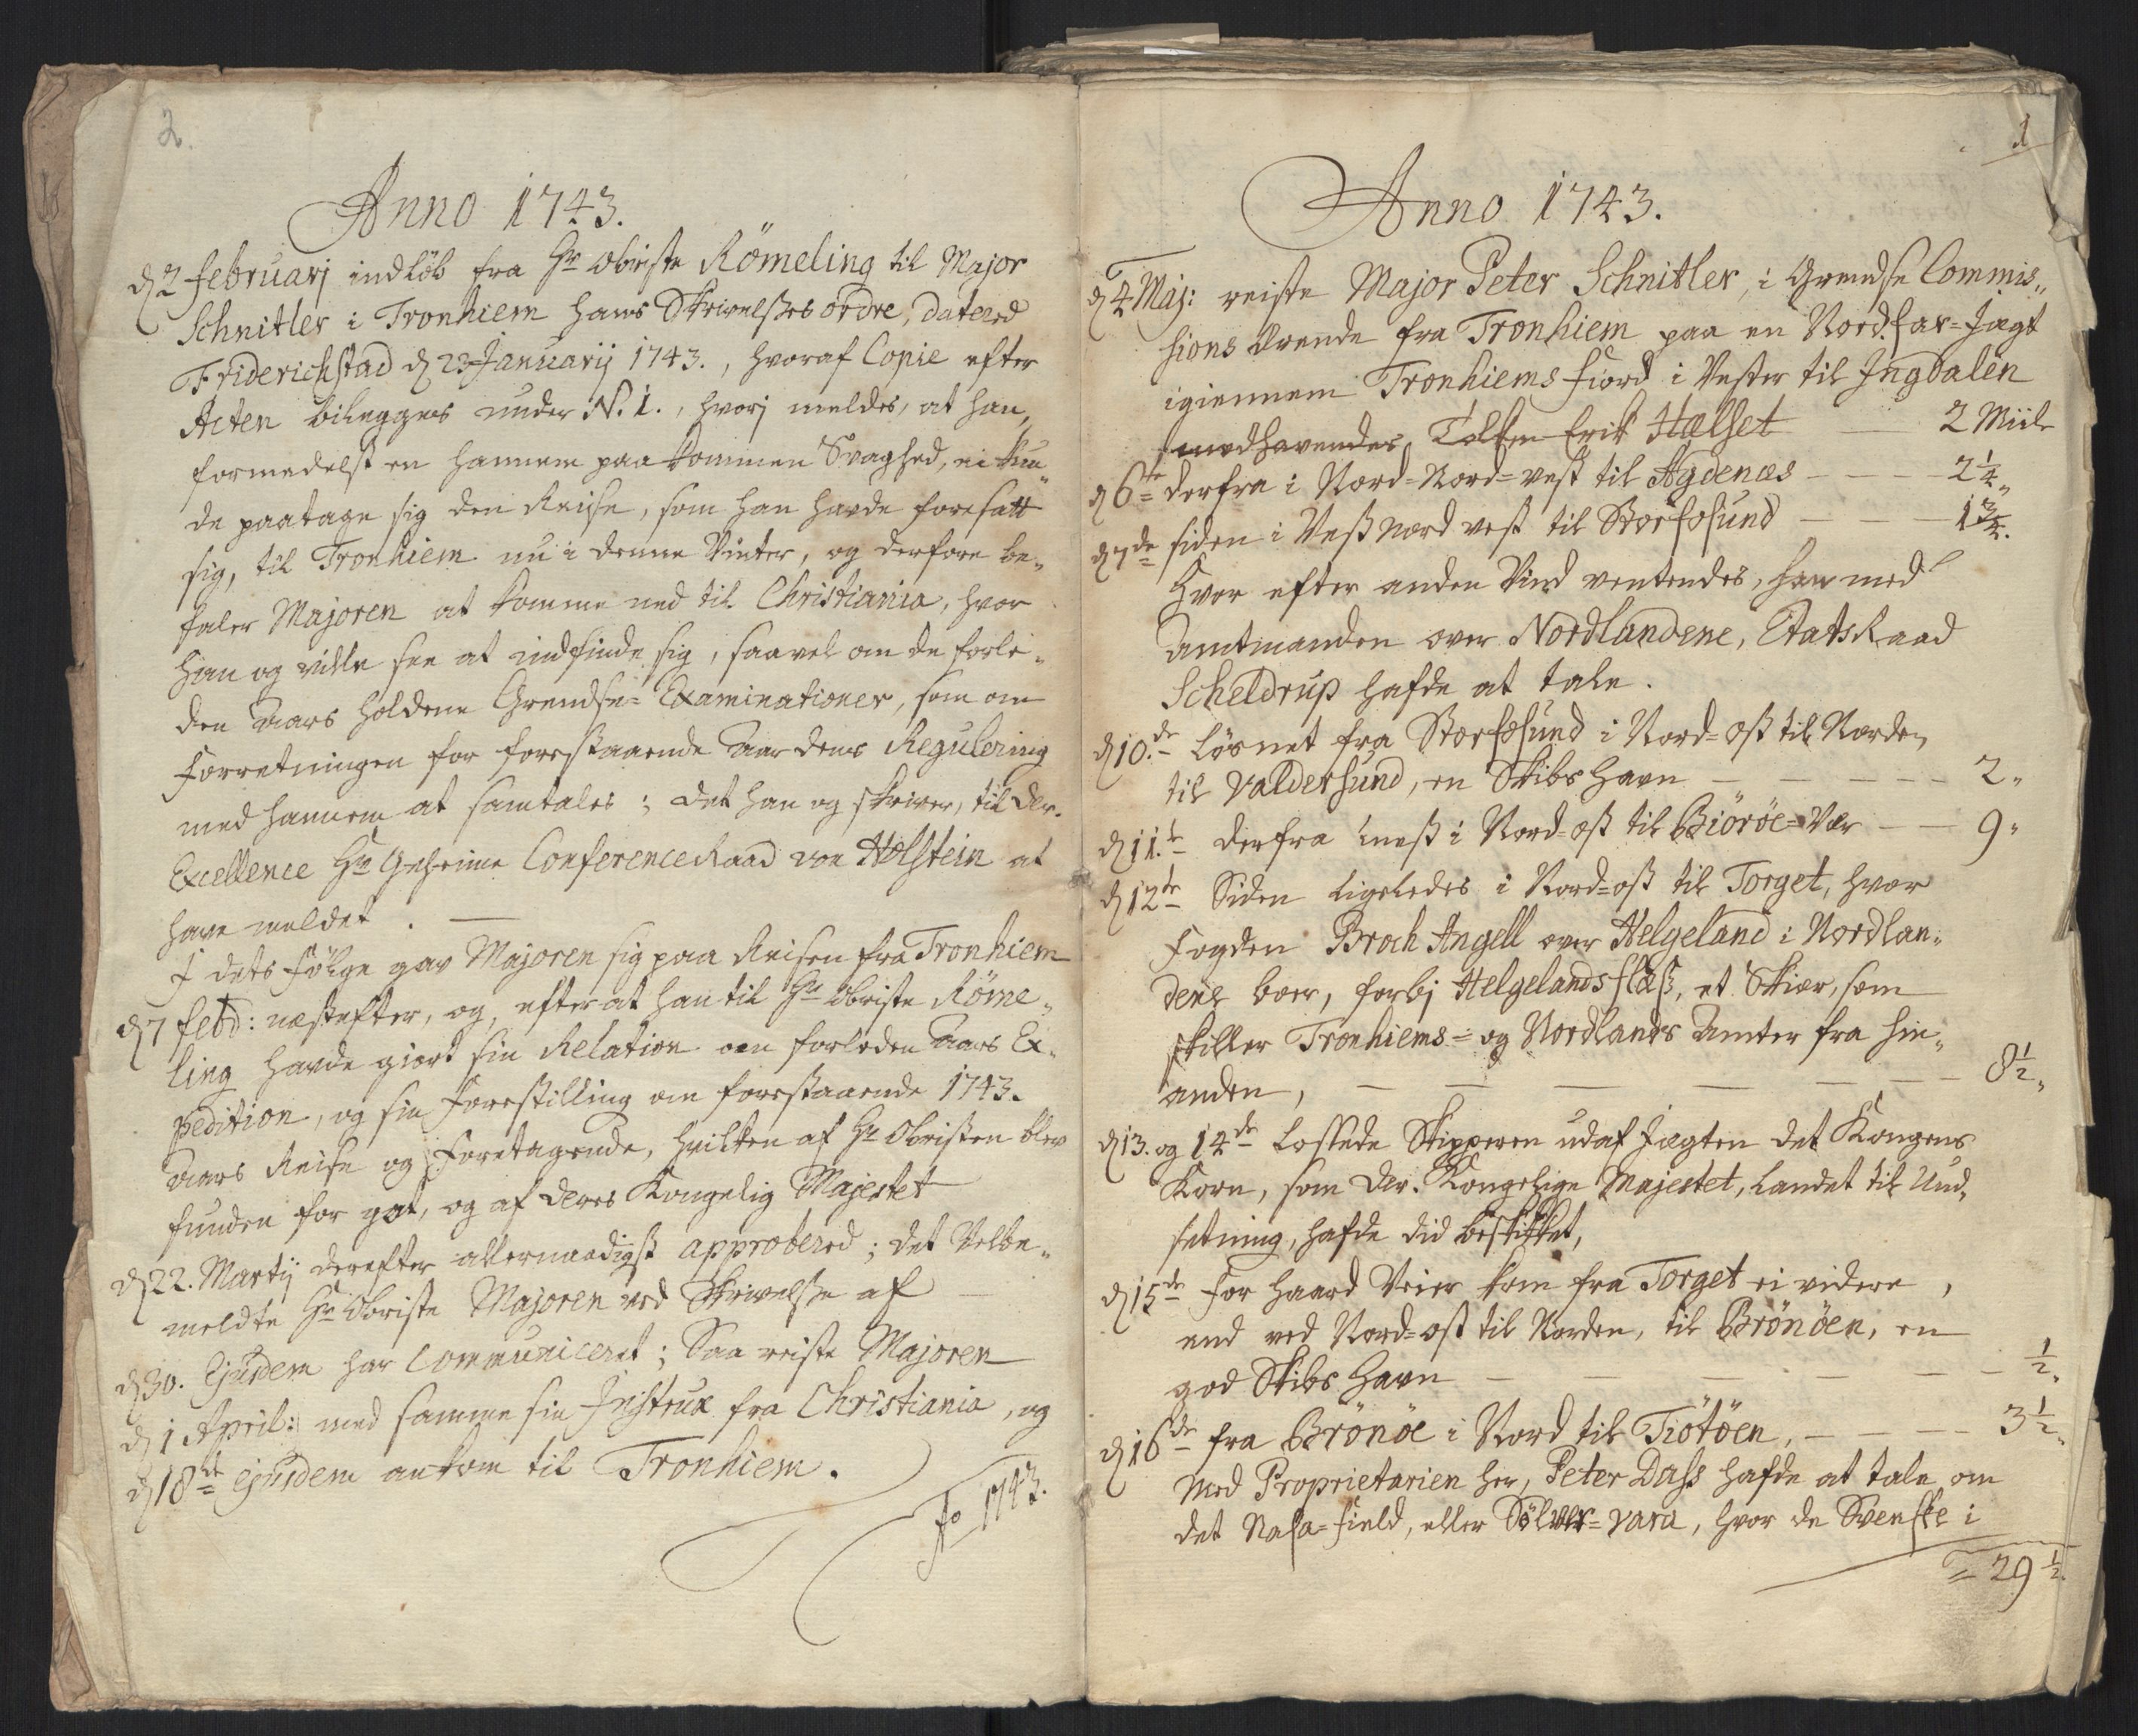 2.
Anno 1743.
d 2 februarj indlöb fra Hr Obriste Römeling til Major
Schnitler i Tronhiem hans Skrivelses ordre, datered
Friderichstad d 23 Januarij 1743., hvoraf Copie efter
Acten bilegges under N. 1., hvorj meldes, at han,
formedelst en hannem paakommen Svaghed, ei kun„
de paatage sig den Reise, som han havde foresatt
sig, til Tronhiem nu i denne Vinter, og derfore be„
faler Majoren at komme ned til Christiania, hvor
han og vilde see at indfinde sig, saavel om de forle„
den aars holdene Grendse-Examinationer, som om
Forretningen for forestaaende aar dens Regulering
med hannem at samtales; det han og skriver, til Der.
Excellence Hr Geheime ConferenceRaad von Holstein at
have meldet. —
J dets Fölge gav Majoren sig paa Reisen fra Tronhiem
d 7 febr: næstefter, og, efter at han til Hr Obriste Röme„
ling havde giort sin Relation om forleden aars Ex„
pedition, og sin Forestilling om forestaaende 1743.
aars Reise og Foretagende, hvilken af Hr Obristen blev
funden for got, og af deres Kongelig Majestet
d 22. Martij derefter allernaadigst approbered; det Velbe„
meldte Hr Obriste Majoren ved Skrivelse af
d 30. Ejusdem har communiceret; Saa reiste Majoren
d 1 April: med samme sin Instrux fra Christiania, og
d 18de ejusdem ankom til Tronhiem.
Ao 1743.
1
Anno 1743.
d 4 Maj: reiste Major Peter Schnitler, i Grendse Commis„
sions Ærende fra Tronhiem paa en Nordfar-Jagt
igiennem Tronhiems Fiord i Vester til Jngdalen
medhavendes Tolken Erik Hælset — 2 Miile
d 6te derfra i Nord-Nord-vest til Agdenæs — — 2 1/4„
d 7de siden i Vest Nord vest til Storfosund — — 1 3/4.
Hvor efter anden Vind ventendes, han med
Amtmanden over Nordlandene, EtatsRaad
Scheldrup hafde at tale.
d 10.de lösnet fra Storfosund i Nord-ost til Norden
til Valdersund, en Skibs Havn — — — — — 2„
d 11.te derfra mest i Nord-ost til Biöröe-Vær — — 9„
d 12te Siden ligeledes i Nord-ost til Torget, hvor
Fogden Broch Angell over Helgeland i Nordlan„
dene boer, forbj Helgelands flæs, et Skiær, som
skiller Tronhiems- og Nordlands Amter fra hin„
anden, — — — — — — 8 1/2„
d 13. og 14de lossede Skipperen udaf Jægten det Kongens
Korn, som Der. Kongelige Majestet, Landet til Und„
setning, hafde did beskikket,
d 15de For haard Veier kom fra Torget ei videre,
end ved Nord-ost til Norden, til Brönöen, en
god Skibs Havn — — — — — — 1/2„
d 16de fra Brönöe i Nord til Tiötöen, — — — — 3 1/2„
Med Proprietarien her, Peter Dass hafde at tale om
det Nasa-Field, eller Sölver-vara, hvor de Svenske i
= 29 1/2.